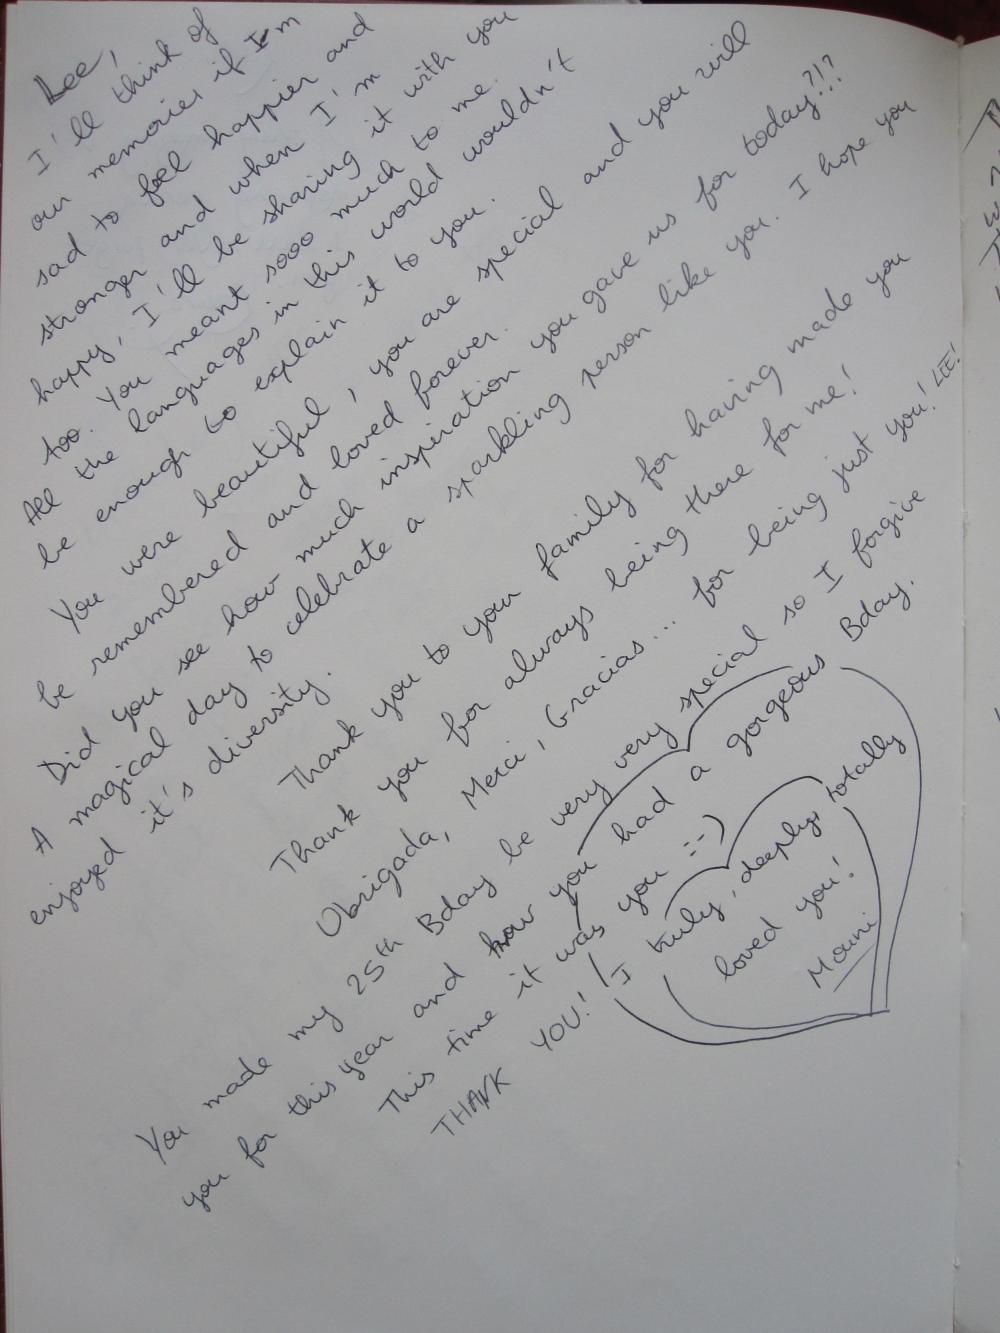 Lee,
I'll think of
our memories if I'm
sad to feel happier and
stronger and when I'm
happy, I'll be sharing it with you
too. You meant sooo much to me.
All the languages in this world wouldn't
be enough to explain it to you.
You were beautiful, you are special and you will
be remembered and loved forever.
Did you see how much inspiration you gave us for today?!?
A magical day to celebrate a sparkling person like you. I hope you
enjoyed it's diversity.
Thank you to your family for having made you
Thank you for always being there for me!
Obrigada, Merci, Gracias... for being just you! LEE!
You made my 25th Bday be very very special so I forgive
you for this year and know you had a gorgeous Bday.
This time it was you :-)
THANK YOU!
I truly, deeply, totally
loved you!
Mouni